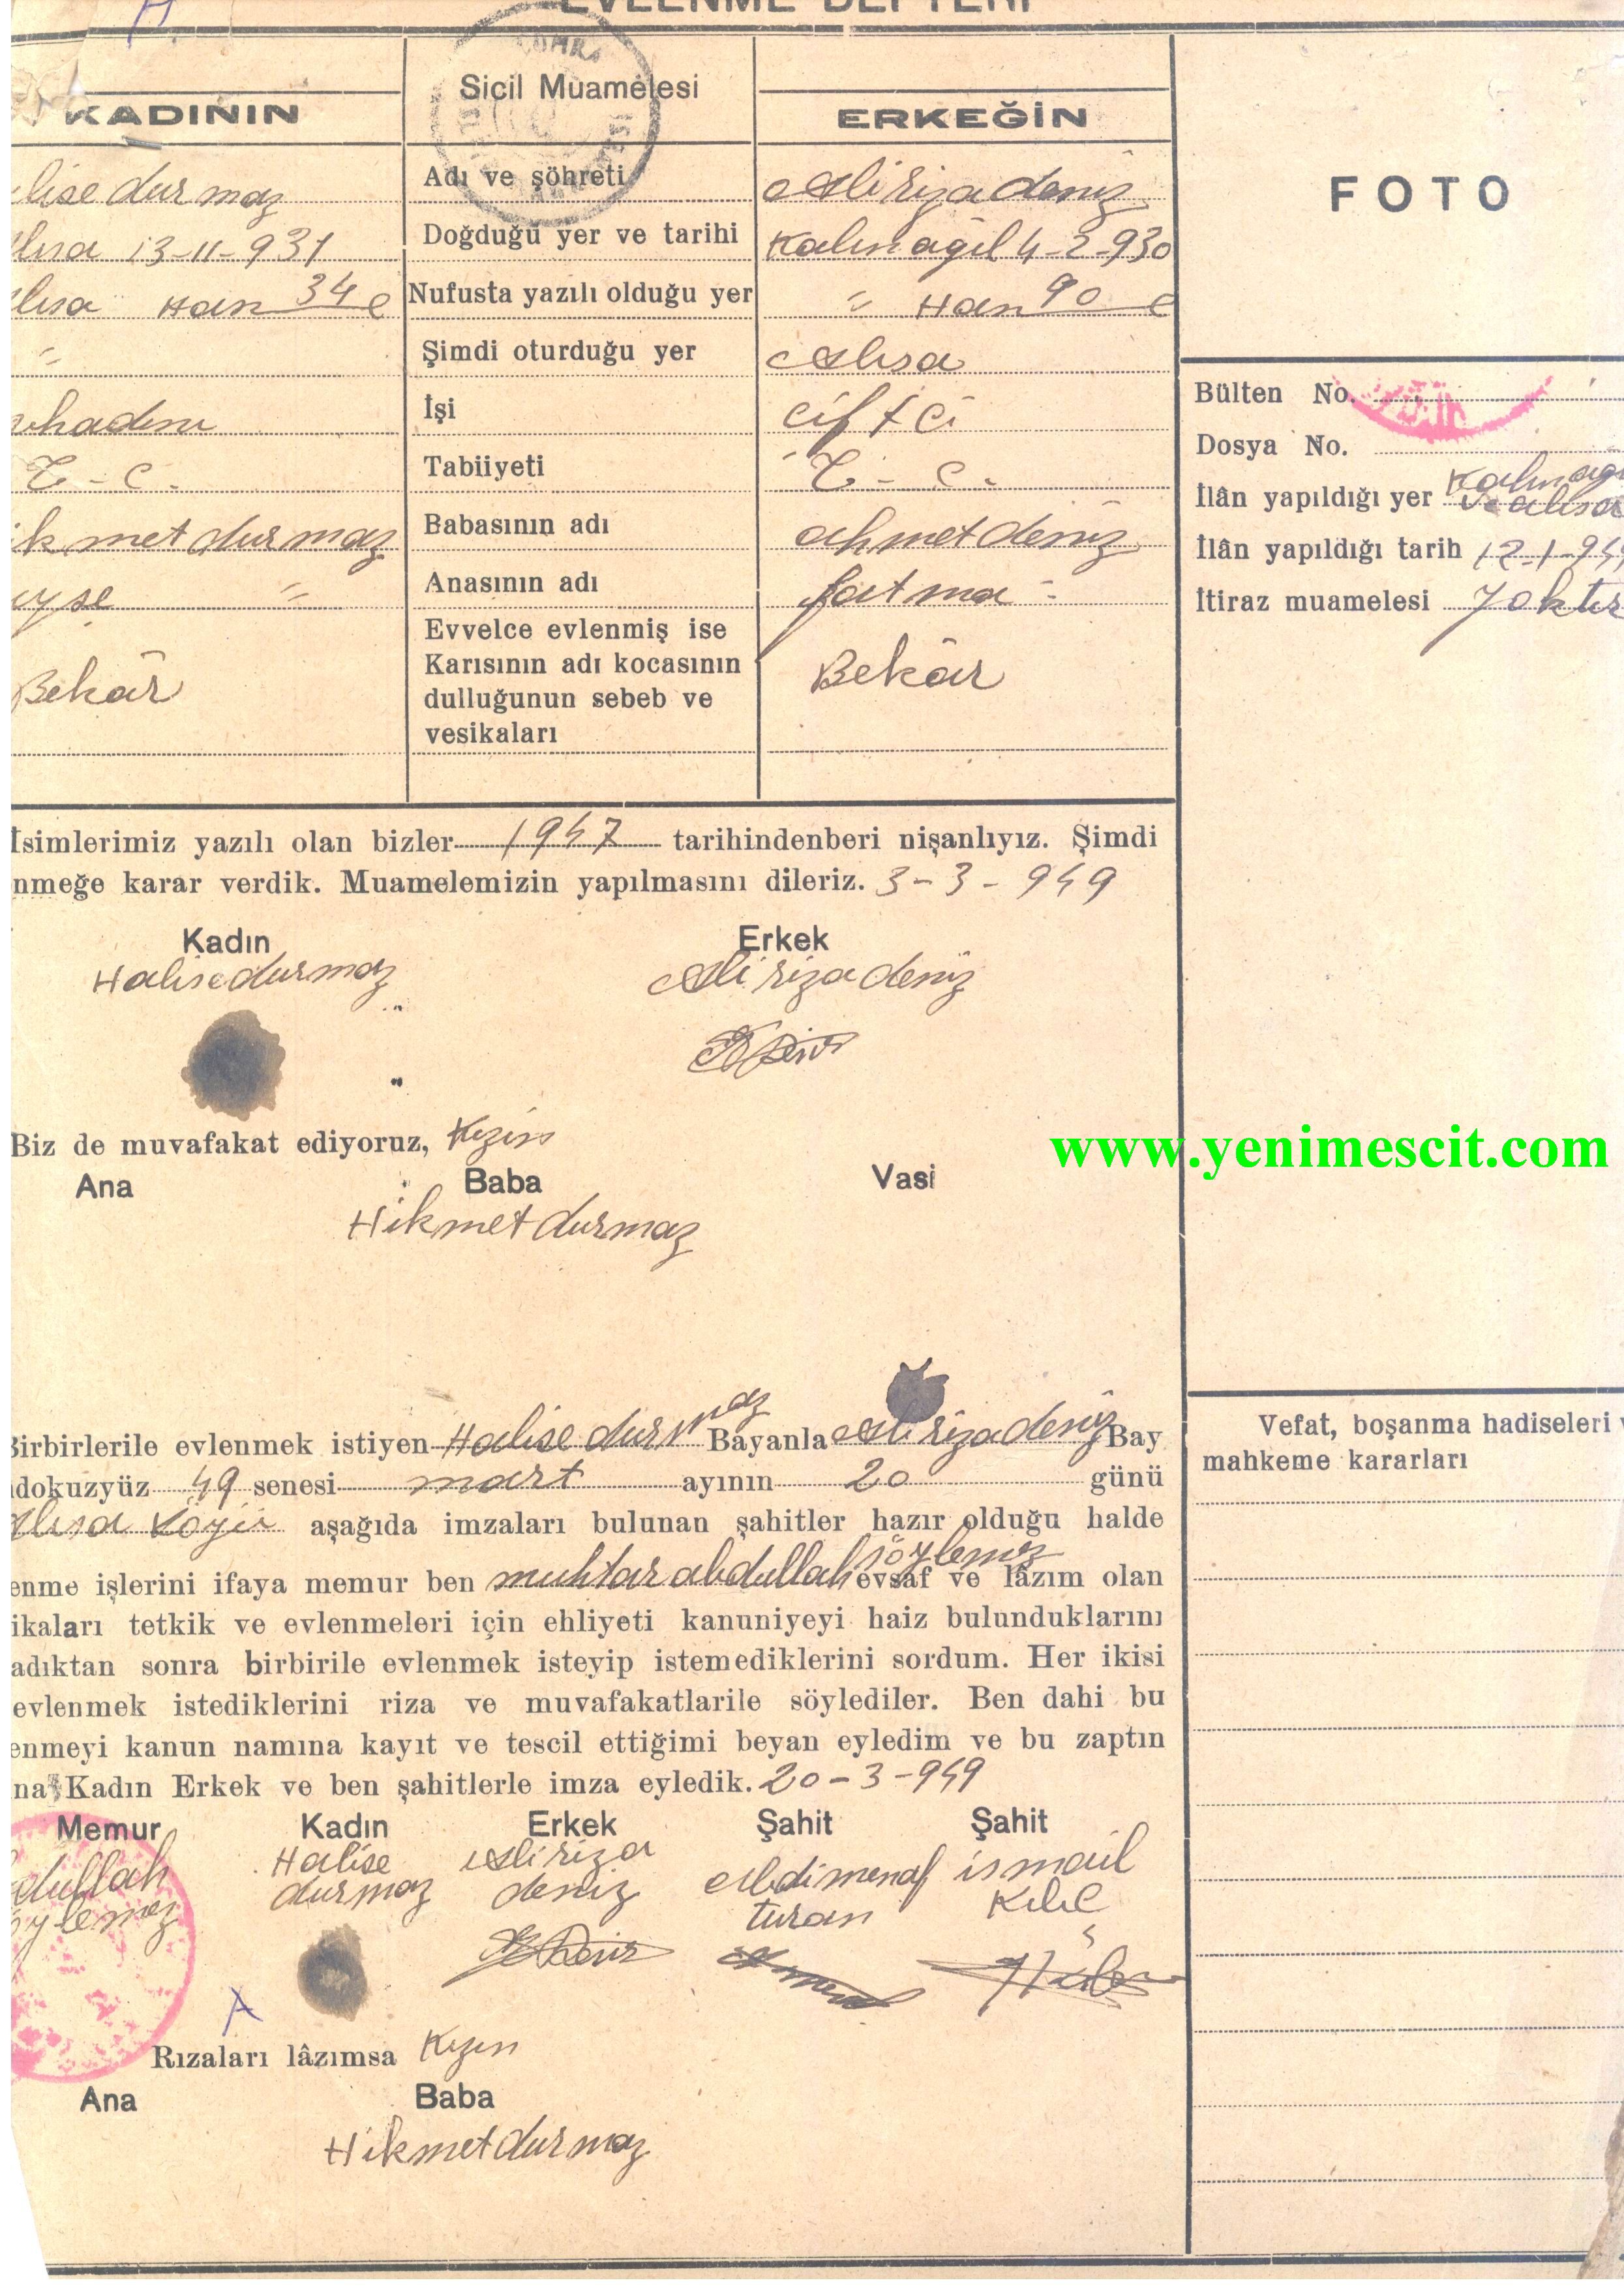 EVLENME DEFTERİ
KADININ
Sicil Muamelesi
ERKEĞİN
FOTO
lise durmaz
Adı ve şöhreti
Ali riza deniz
lısa 13-11-931
Doğduğu yer ve tarihi
Kalın ağıl 4-2-930
lısa " Han 34 C
Nufusta yazılı olduğu yer
" Han 90 C
"
Şimdi oturduğu yer
Alısa
Bülten No.
vhadını
İşi
çiftci
Dosya No.
T-C.
Tabiiyeti
T-C.
İlân yapıldığı yer Kalınağı
ve alısa
ikmet durmaz
Babasının adı
ahmet deniz
İlân yapıldığı tarih 12-1-949
yşe "
Anasının adı
fatma "
İtiraz muamelesi yoktur
Bekâr
Evvelce evlenmiş ise
Karısının adı kocasının
dulluğunun sebeb ve
vesikaları
Bekâr
İsimlerimiz yazılı olan bizler 1947 tarihindenberi nişanlıyız. Şimdi
nmeğe karar verdik. Muamelemizin yapılmasını dileriz. 3-3-949
Kadın Erkek
Halise durmaz Ali riza deniz
Biz de muvafakat ediyoruz, Kızın
Ana Baba Vasi
Hikmet durmaz
www.yenimescit.com
Birbirlerile evlenmek istiyen Halise durmaz Bayanla Ali riza deniz Bay
dokuzyüz 49 senesi mart ayının 20 günü
Alısa Köyü aşağıda imzaları bulunan şahitler hazır olduğu halde
enme işlerini ifaya memur ben muhtar abdullah söylemez evsaf ve lâzım olan
ikaları tetkik ve evlenmeleri için ehliyeti kanuniyeyi haiz bulunduklarını
adıktan sonra birbirile evlenmek isteyip istemediklerini sordum. Her ikisi
evlenmek istediklerini riza ve muvafakatlarile söylediler. Ben dahi bu
enmeyi kanun namına kayıt ve tescil ettiğimi beyan eyledim ve bu zaptın
na Kadın Erkek ve ben şahitlerle imza eyledik. 20-3-949
Vefat, boşanma hadiseleri v
mahkeme kararları
Memur Kadın Erkek Şahit Şahit
dullah Halise Ali riza Abdimenaf ismail
öylemez durmaz deniz turan Kılıç
A
Rızaları lâzımsa Kızın
Ana Baba
Hikmet durmaz